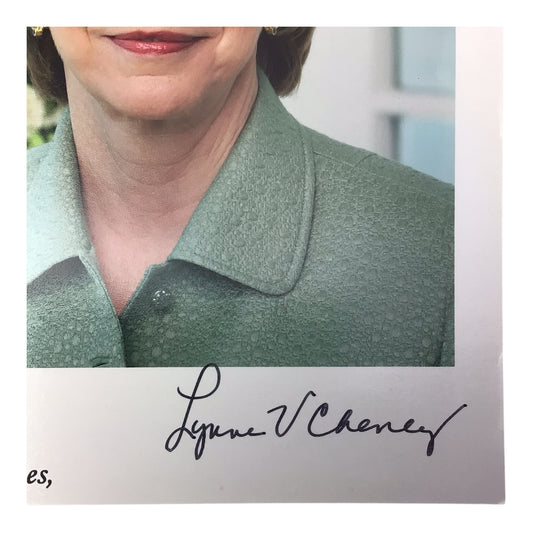 Lynne V Cheney
es,